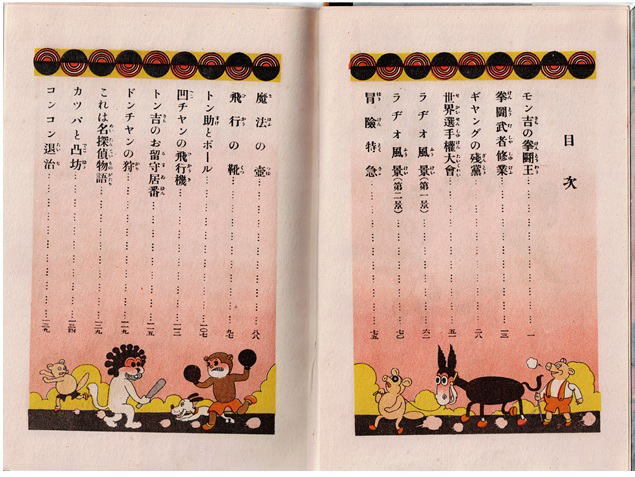 目次
モン吉の拳闘王 一
拳闘武者修業 一三
ギヤングの殘黨 二八
世界選手權大會 五一
ラヂオ風景(第一景) 六二
ラヂオ風景(第二景) 七〇
冒險特急 七五
魔法の壺 八八
飛行の靴 九七
トン助とボール 一〇七
凹チヤンの飛行機 一一三
トン吉のお留守居番 一一五
ドンチヤンの狩 一一九
これは名探偵物語
カツパと凸坊
コンコン退治